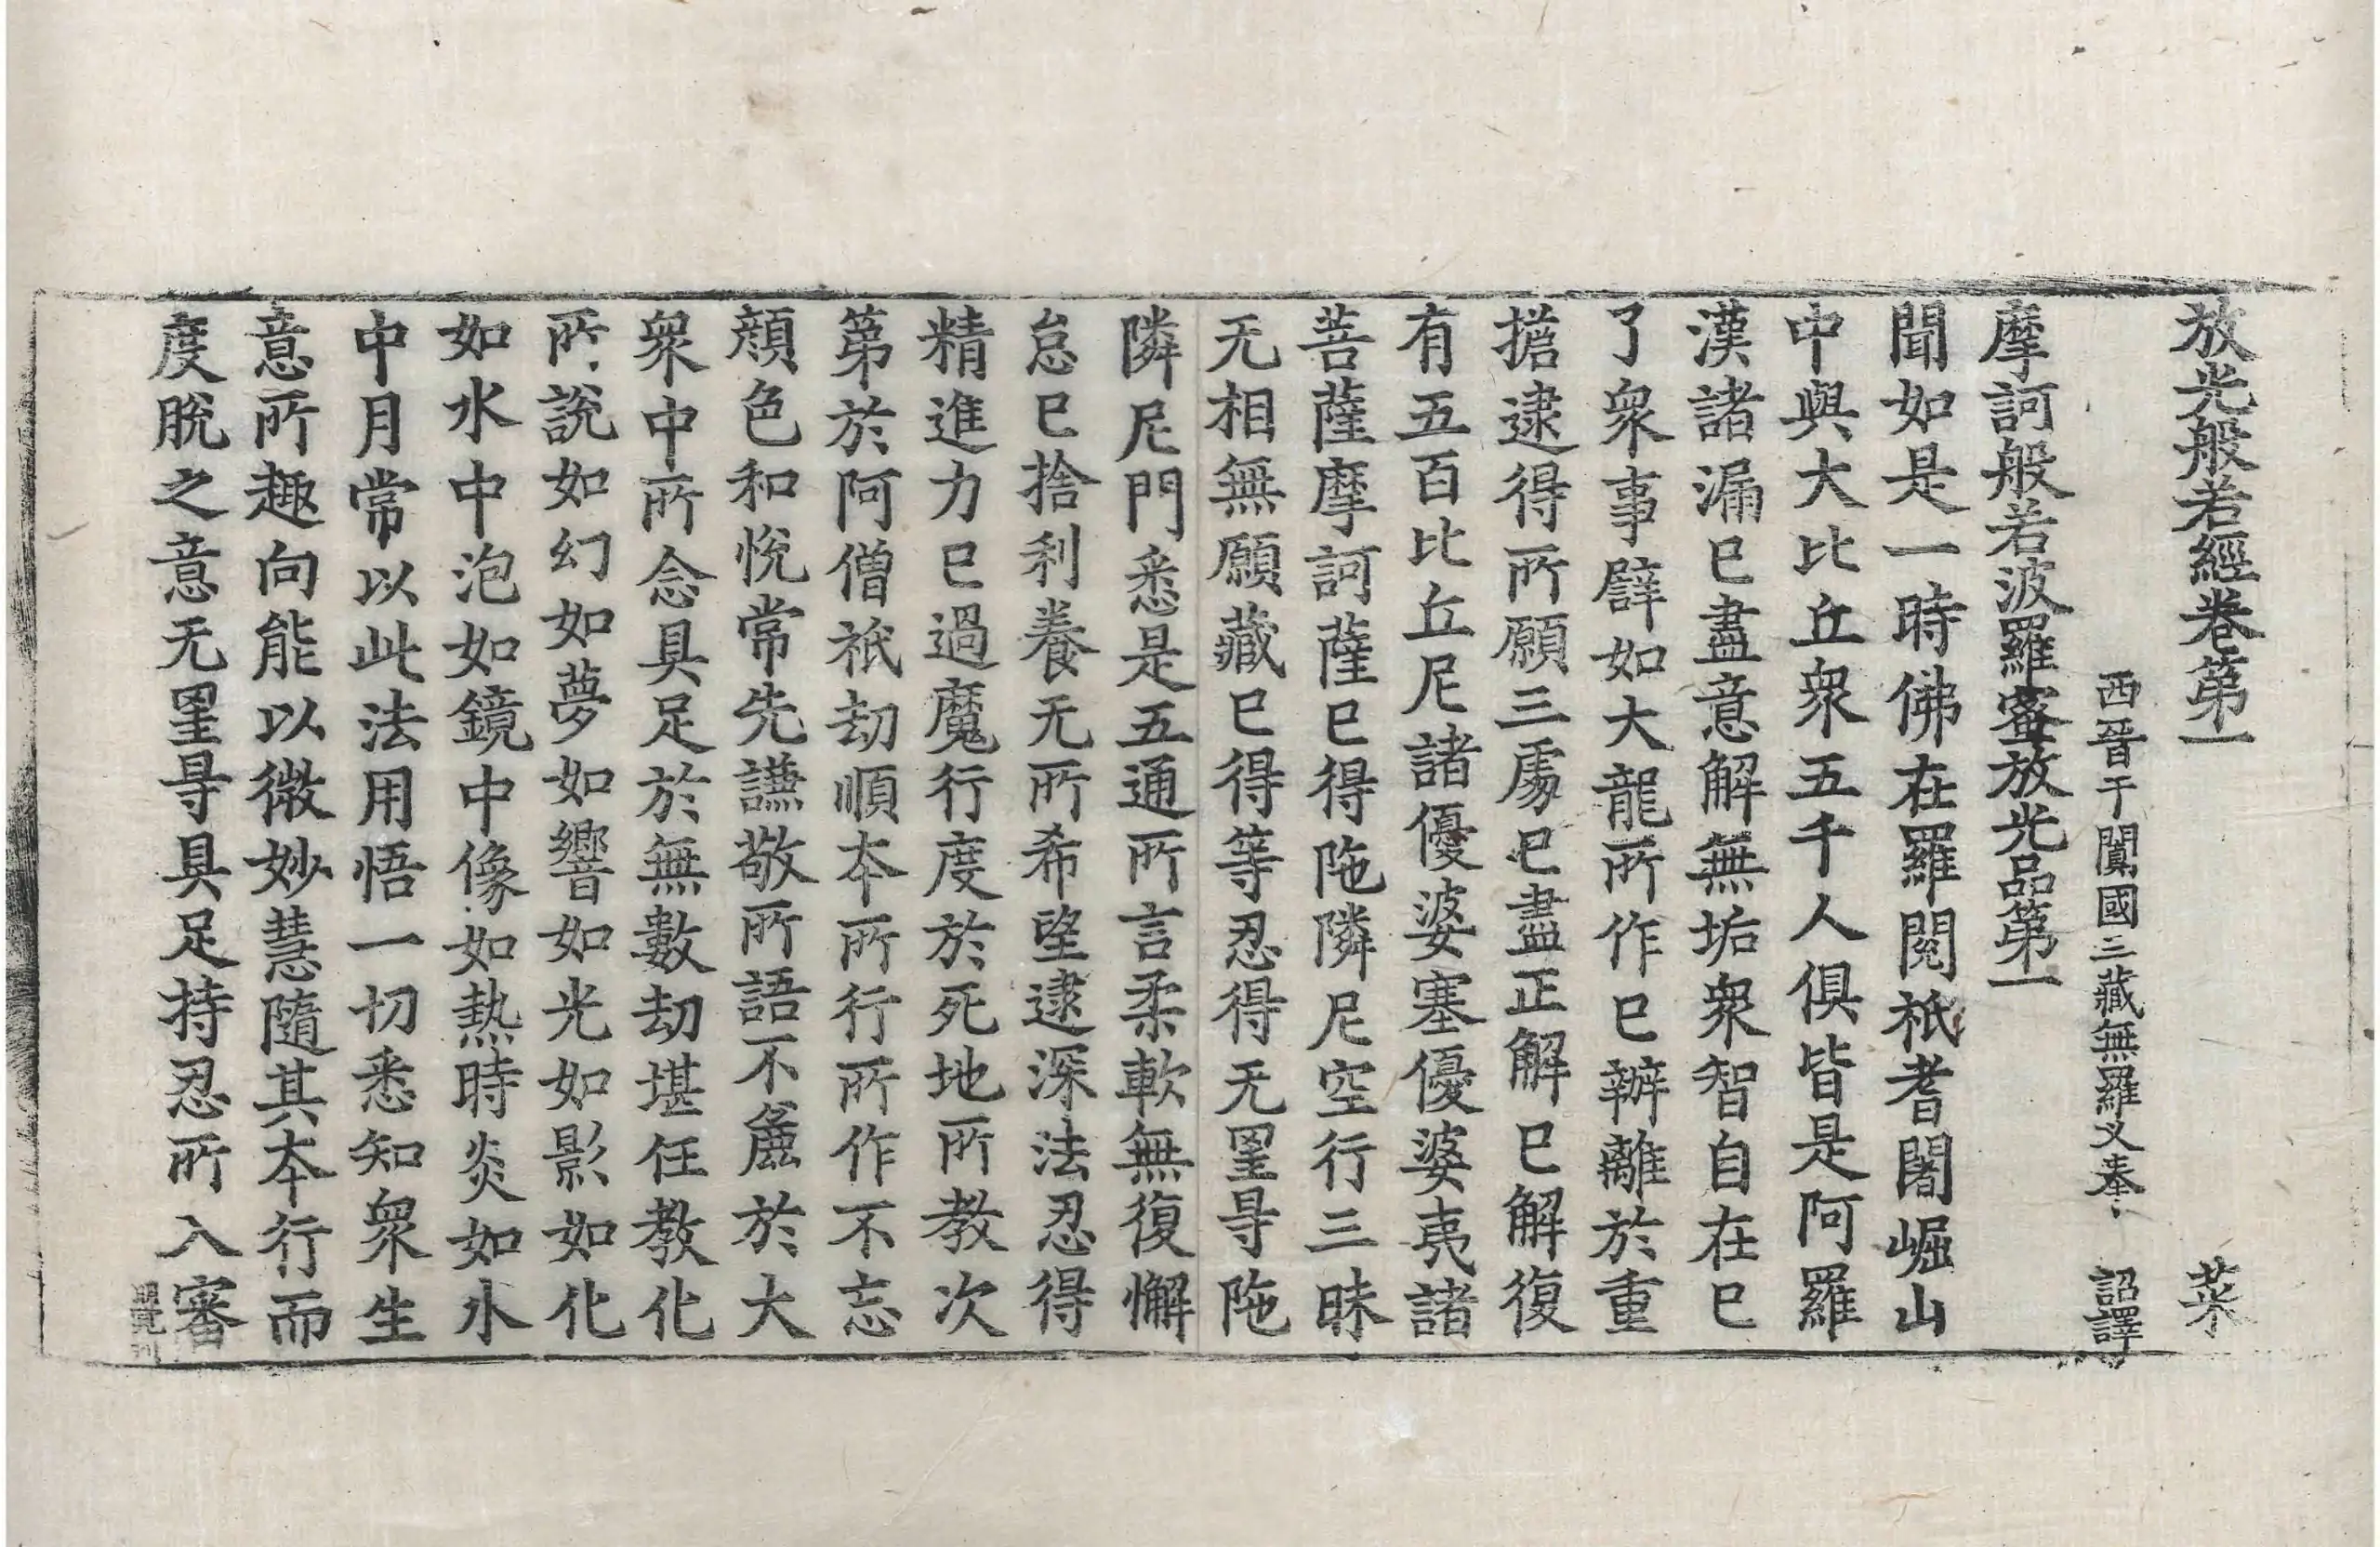 放光般若經卷第一 菜
西晉于闐國三藏無羅叉奉 詔譯
摩訶般若波羅蜜放光品第一
聞如是一時佛在羅閱祇耆闍崛山
中與大比丘衆五千人俱皆是阿羅
漢諸漏已盡意解無垢衆智自在已
了衆事譬如大龍所作已辦離於重
擔逮得所願三處已盡正解已解復
有五百比丘尼諸優婆塞優婆夷諸
菩薩摩訶薩已得陁隣尼空行三昧
无相無願藏已得等忍得无罣㝵陁
隣尼門悉是五通所言柔軟無復懈
怠已捨利養无所希望逮深法忍得
精進力已過魔行度於死地所教次
第於阿僧祇劫順本所行所作不忘
顔色和悅常先謙敬所語不麁於大
衆中所念具足於無數劫堪任教化
所說如幻如夢如響如光如影如化
如水中泡如鏡中像如熱時炎如水
中月常以此法用悟一切悉知衆生
意所趣向能以微妙慧隨其本行而
度脫之意无罣㝵具足持忍所入審